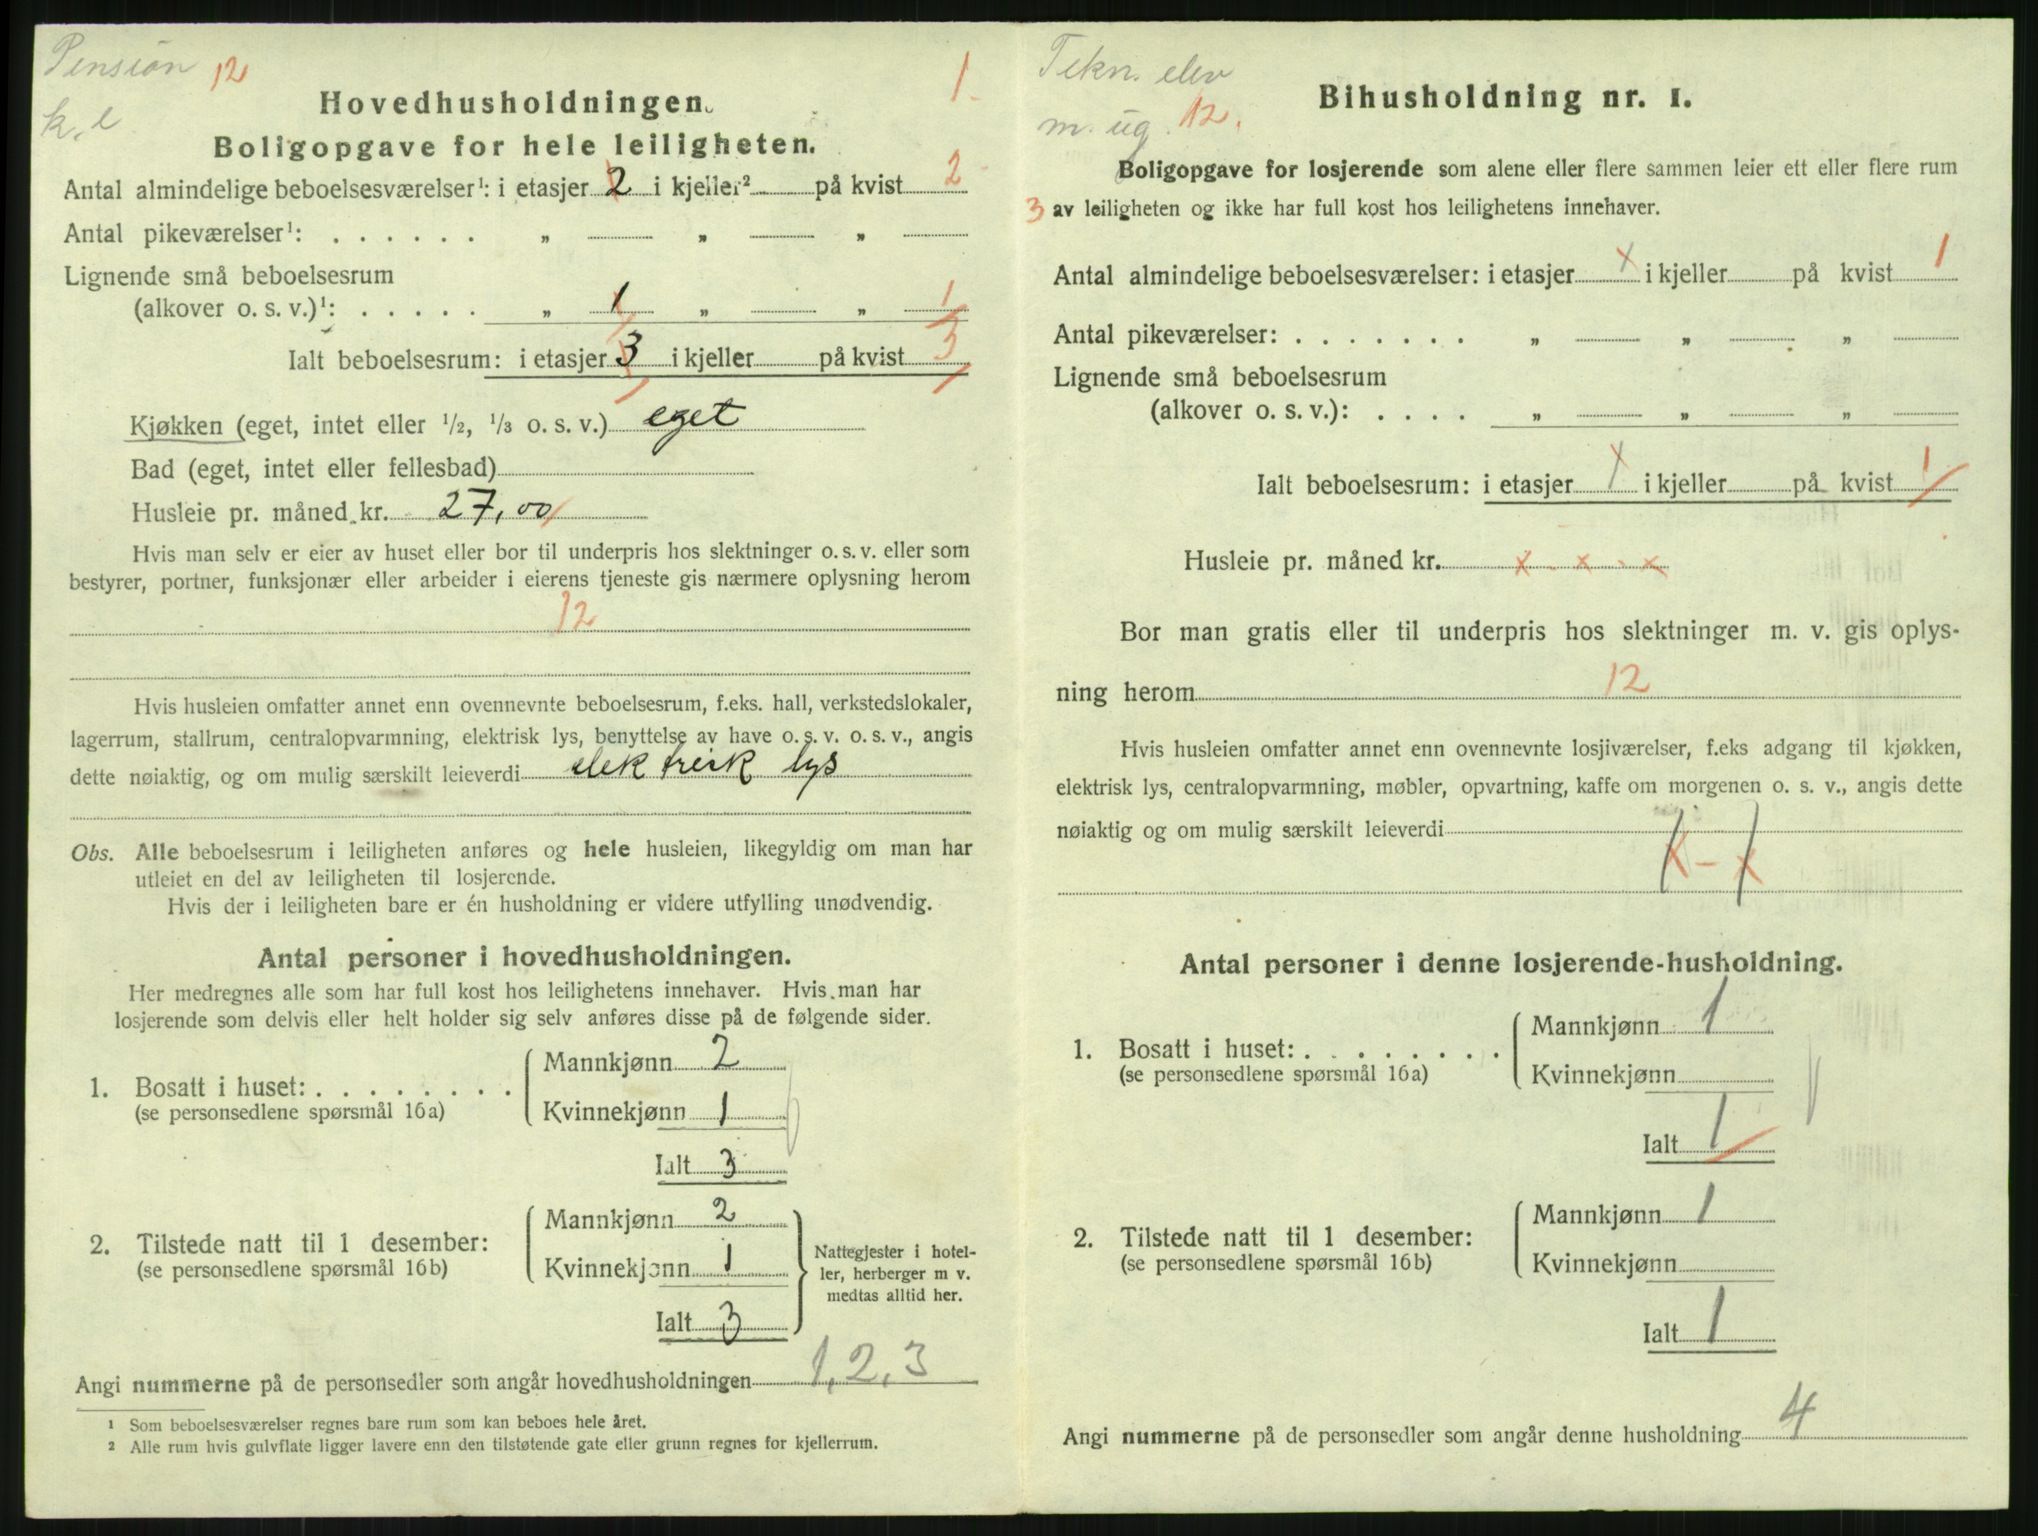 Pension 12
k. e
1
Hovedhusholdningen.
Boligopgave for hele leiligheten.
Antal almindelige beboelsesværelser¹: i etasjer 2 i kjeller² på kvist 2
Antal pikeværelser¹: . . . . . . „ „ „
Lignende små beboelsesrum
(alkover o. s. v.)¹: . . . . . „ 1 „ „ 1
Ialt beboelsesrum: i etasjer 3 i kjeller på kvist 3
Kjøkken (eget, intet eller ½, ⅓ o. s. v.) eget
Bad (eget, intet eller fellesbad)
Husleie pr. måned kr. 27,00
Hvis man selv er eier av huset eller bor til underpris hos slektninger o. s. v. eller som
bestyrer, portner, funksjonær eller arbeider i eierens tjeneste gis nærmere oplysning herom
12
Hvis husleien omfatter annet enn ovennevnte beboelsesrum, f.eks. hall, verkstedslokaler,
lagerrum, stallrum, centralopvarmning, elektrisk lys, benyttelse av have o. s. v. o. s. v., angis
dette nøiaktig, og om mulig særskilt leieverdi elektrisk lys
Obs. Alle beboelsesrum i leiligheten anføres og hele husleien, likegyldig om man har
utleiet en del av leiligheten til losjerende.
Hvis der i leiligheten bare er én husholdning er videre utfylling unødvendig.
Antal personer i hovedhusholdningen.
Her medregnes alle som har full kost hos leilighetens innehaver. Hvis man har
losjerende som delvis eller helt holder sig selv anføres disse på de følgende sider.
1. Bosatt i huset: . . . . . . . .
(se personsedlene spørsmål 16a)
Mannkjønn 2
Kvinnekjønn 1
Ialt 3
2. Tilstede natt til 1 desember:
(se personsedlene spørsmål 16b)
Mannkjønn 2
Kvinnekjønn 1
Ialt 3
Nattegjester i hotel-
ler, herberger m v.
medtas alltid her.
Angi nummerne på de personsedler som angår hovedhusholdningen 1, 2, 3
¹ Som beboelsesværelser regnes bare rum som kan beboes hele året.
² Alle rum hvis gulvflate ligger lavere enn den tilstøtende gate eller grunn regnes for kjellerrum.
Tekn. elev
m. ug. 12.
Bihusholdning nr. 1.
Boligopgave for losjerende som alene eller flere sammen leier ett eller flere rum
3 av leiligheten og ikke har full kost hos leilighetens innehaver.
Antal almindelige beboelsesværelser: i etasjer 1 i kjeller på kvist 1
Antal pikeværelser: . . . . . . . „ „ „
Lignende små beboelsesrum
(alkover o. s. v.): . . . . „ „ „
Ialt beboelsesrum: i etasjer 1 i kjeller på kvist 1
Husleie pr. måned kr. x - x - x
Bor man gratis eller til underpris hos slektninger m. v. gis oplys-
ning herom 12
Hvis husleien omfatter annet enn ovennevnte losjiværelser, f.eks adgang til kjøkken,
elektrisk lys, centralopvarmning, møbler, opvartning, kaffe om morgenen o. s. v., angis dette
nøiaktig og om mulig særskilt leieverdi
x - x
Antal personer i denne losjerende-husholdning.
1. Bosatt i huset: . . . . . . . .
(se personsedlene spørsmål 16a)
Mannkjønn 1
Kvinnekjønn
Ialt 1
2. Tilstede natt til 1 desember:
(se personsedlene spørsmål 16b)
Mannkjønn 1
Kvinnekjønn
Ialt 1
Angi nummerne på de personsedler som angår denne husholdning 4